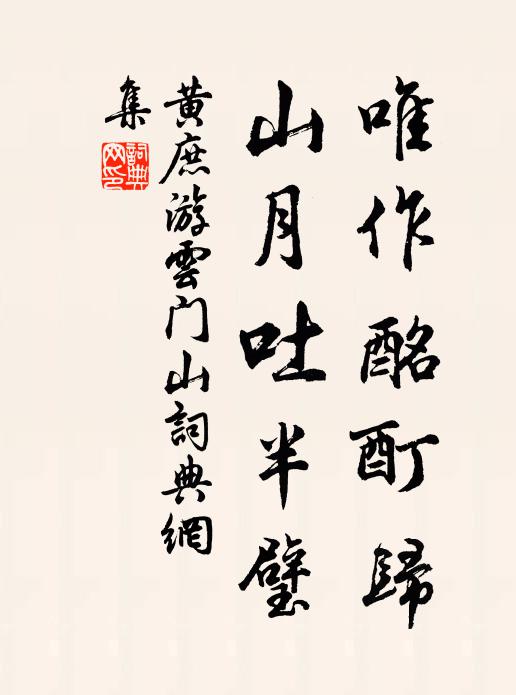 唯作酩酊歸
山月吐半壁
黃庶游雲門山詞典網
集
詞典網印